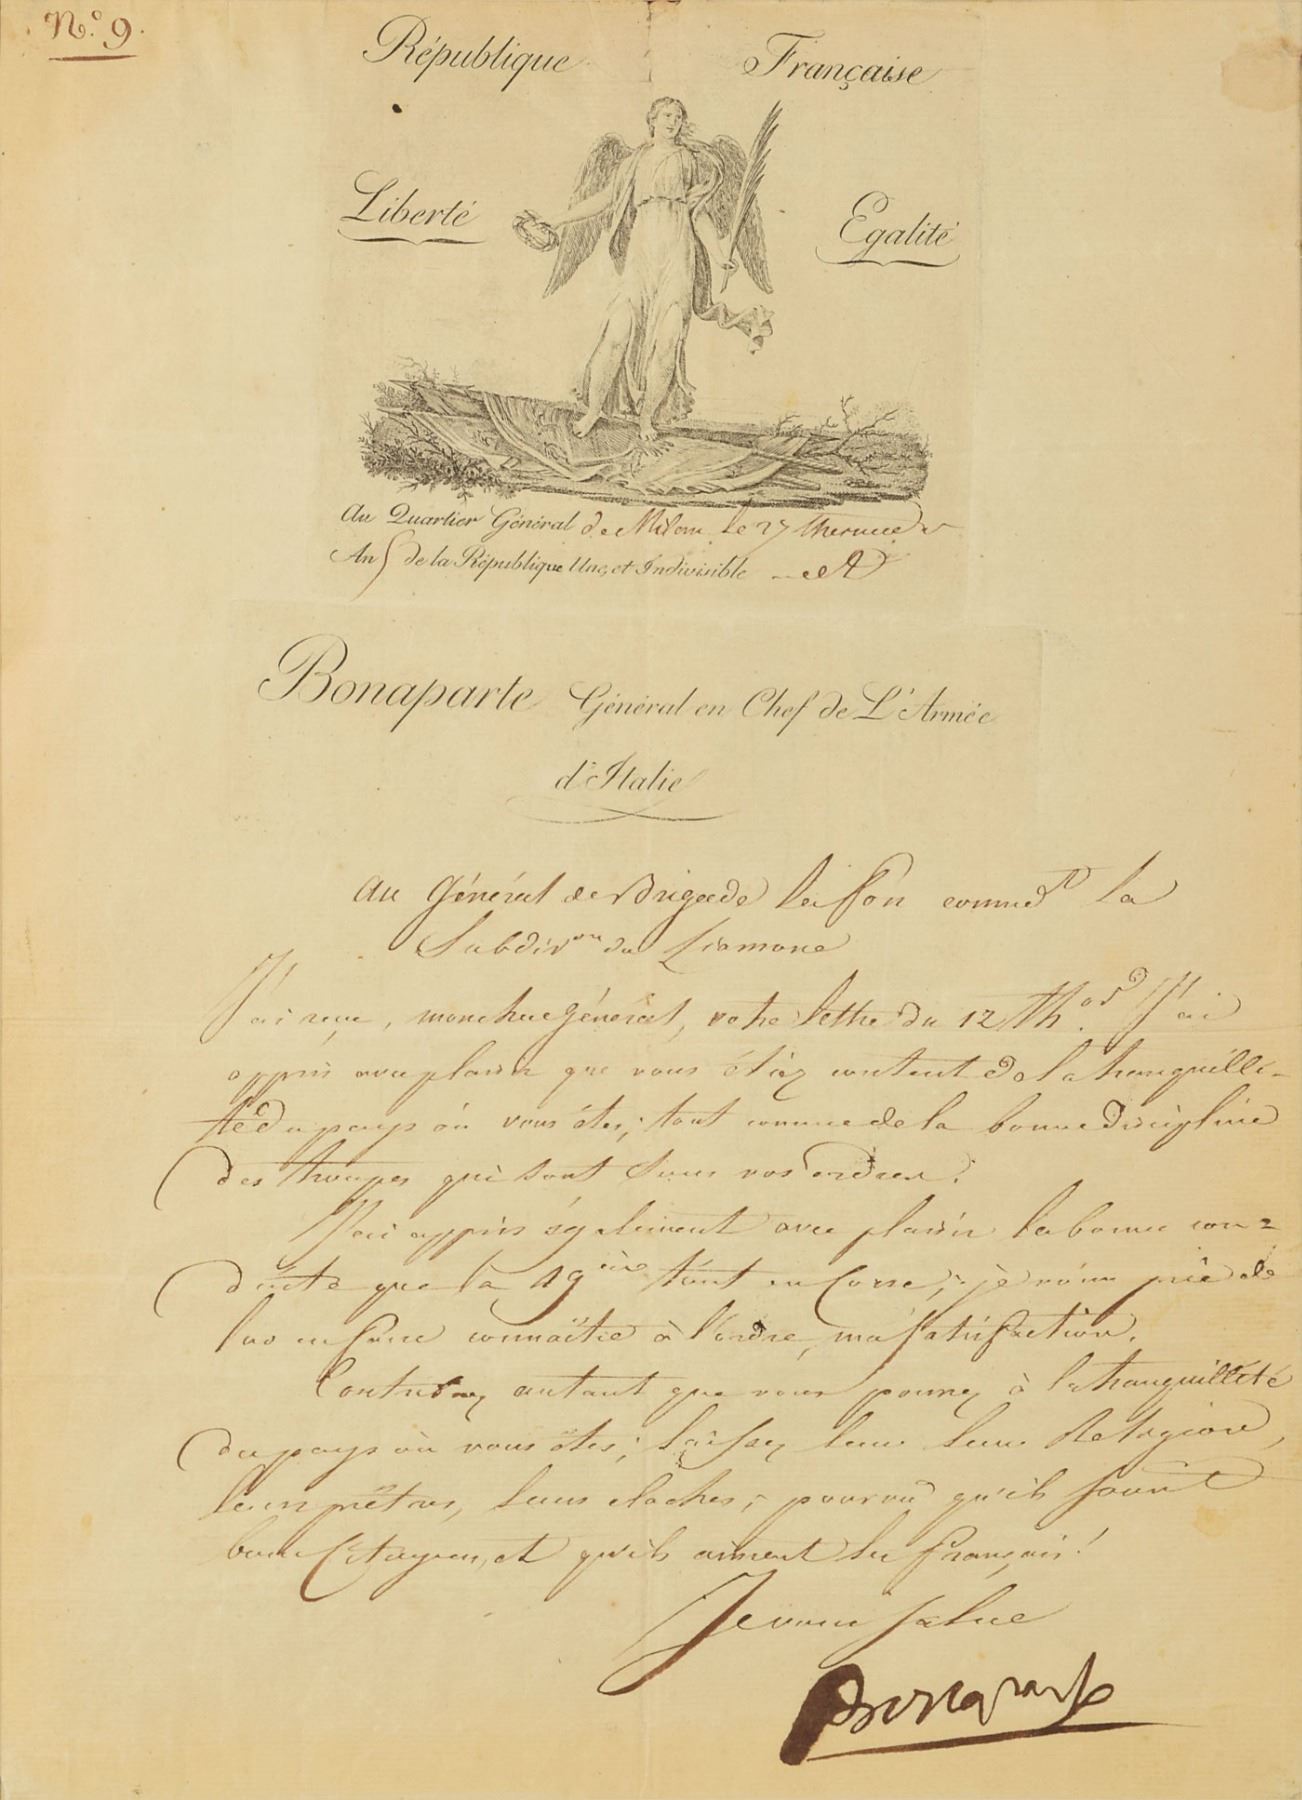 N.º 9.
République Française
Liberté Egalité
Au Quartier Général de Milan le 27 thermidor
An 5 de la République Une, et Indivisible
Bonaparte Général en Chef de L'Armée
d'Italie
Au Général de Brigade Lafon commdt la
Subdivon du Liamone
J'ai reçu, mon cher Général, votre lettre du 12 Th.or J'ai
appris avec plaisir que vous étiez content de la tranquilli-
té du pays où vous êtes; tout comme de la bonne discipline
des troupes qui sont sous vos ordres.
J'ai appris également avec plaisir la bonne con=
duite que la 19ème tient en Corse; je vous prie de
lui en faire connaître à l'ordre, ma satisfaction.
Contribuez autant que vous pourrez à la tranquillité
du pays où vous êtes; laissez leur leur Religion,
leurs prêtres, leurs cloches; pourvu qu'ils soient
bons Citoyens, et qu'ils aiment les français!
Je vous salue
Bonaparte